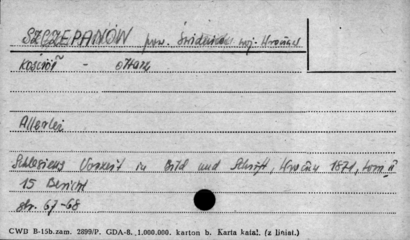 SZCZEPANÓW pow. Średzki woj. Wrocław
kościół - ołtarz
Allerlei
Schlesiens Vorzeit in Bild und Schrift, Wrocław 1871, tom II
15 Bericht
str. 67-68
CWD B-15b.zam. 2899/P. GDA-8. 1.000.000. karton b. Karta katal. (z liniat.)